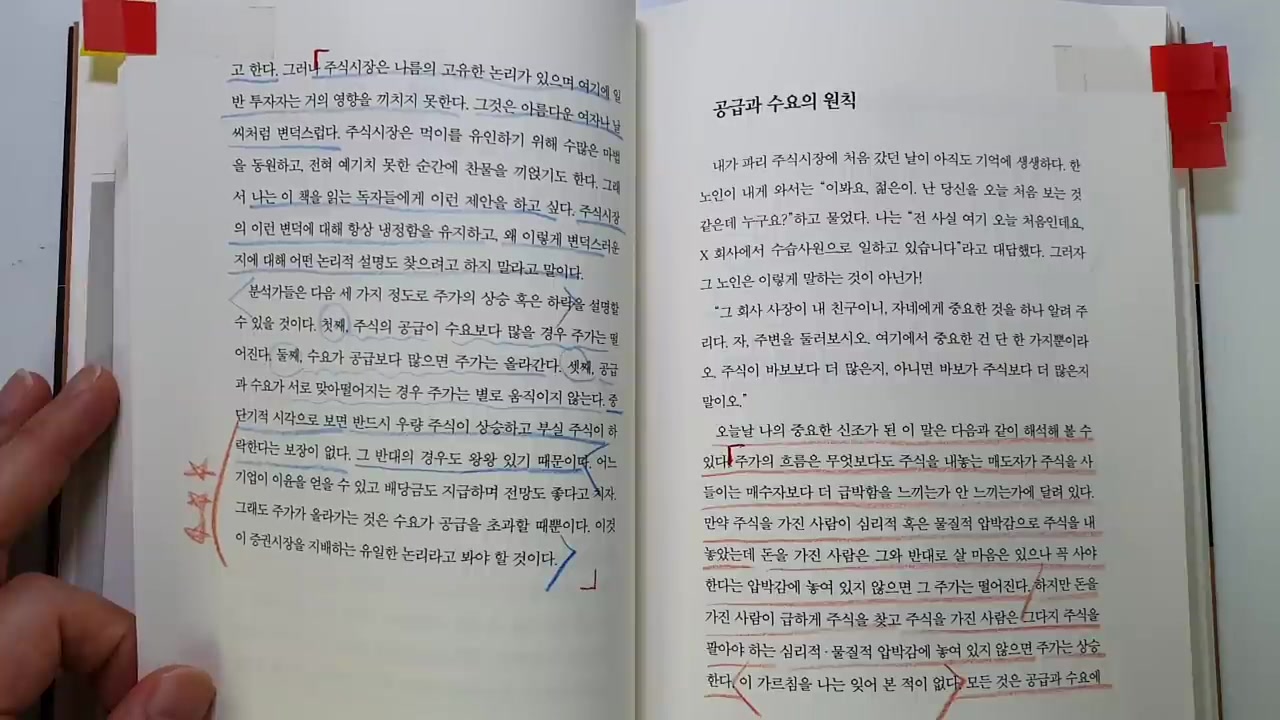 고 한다. 그러나 주식시장은 나름의 고유한 논리가 있으며 여기에 일
반 투자자는 거의 영향을 끼치지 못한다. 그것은 아름다운 여자나 날
씨처럼 변덕스럽다. 주식시장은 먹이를 유인하기 위해 수많은 마법
을 동원하고, 전혀 예기치 못한 순간에 찬물을 끼얹기도 한다. 그래
서 나는 이 책을 읽는 독자들에게 이런 제안을 하고 싶다. 주식시장
의 이런 변덕에 대해 항상 냉정함을 유지하고, 왜 이렇게 변덕스러운
지에 대해 어떤 논리적 설명도 찾으려고 하지 말라고 말이다.
분석가들은 다음 세 가지 정도로 주가의 상승 혹은 하락을 설명할
수 있을 것이다. 첫째, 주식의 공급이 수요보다 많을 경우 주가는 떨
어진다. 둘째, 수요가 공급보다 많으면 주가는 올라간다. 셋째, 공급
과 수요가 서로 맞아떨어지는 경우 주가는 별로 움직이지 않는다. 중
단기적 시각으로 보면 반드시 우량 주식이 상승하고 부실 주식이 하
락한다는 보장이 없다. 그 반대의 경우도 왕왕 있기 때문이다. 어느
기업이 이윤을 얻을 수 있고 배당금도 지급하며 전망도 좋다고 치자.
그래도 주가가 올라가는 것은 수요가 공급을 초과할 때뿐이다. 이것
이 증권시장을 지배하는 유일한 논리라고 봐야 할 것이다.
공급과 수요의 원칙
내가 파리 주식시장에 처음 갔던 날이 아직도 기억에 생생하다. 한
노인이 내게 와서는 “이봐요, 젊은이. 난 당신을 오늘 처음 보는 것
같은데 누구요?”하고 물었다. 나는 “전 사실 여기 오늘 처음인데요,
X 회사에서 수습사원으로 일하고 있습니다”라고 대답했다. 그러자
그 노인은 이렇게 말하는 것이 아닌가!
“그 회사 사장이 내 친구이니, 자네에게 중요한 것을 하나 알려 주
리다. 자, 주변을 둘러보시오. 여기에서 중요한 건 단 한 가지뿐이라
오. 주식이 바보보다 더 많은지, 아니면 바보가 주식보다 더 많은지
말이오.”
오늘날 나의 중요한 신조가 된 이 말은 다음과 같이 해석해 볼 수
있다. 주가의 흐름은 무엇보다도 주식을 내놓는 매도자가 주식을 사
들이는 매수자보다 더 급박함을 느끼는가 안 느끼는가에 달려 있다.
만약 주식을 가진 사람이 심리적 혹은 물질적 압박감으로 주식을 내
놓았는데 돈을 가진 사람은 그와 반대로 살 마음은 있으나 꼭 사야
한다는 압박감에 놓여 있지 않으면 그 주가는 떨어진다. 하지만 돈을
가진 사람이 급하게 주식을 찾고 주식을 가진 사람은 그다지 주식을
팔아야 하는 심리적·물질적 압박감에 놓여 있지 않으면 주가는 상승
한다. 이 가르침을 나는 잊어 본 적이 없다. 모든 것은 공급과 수요에